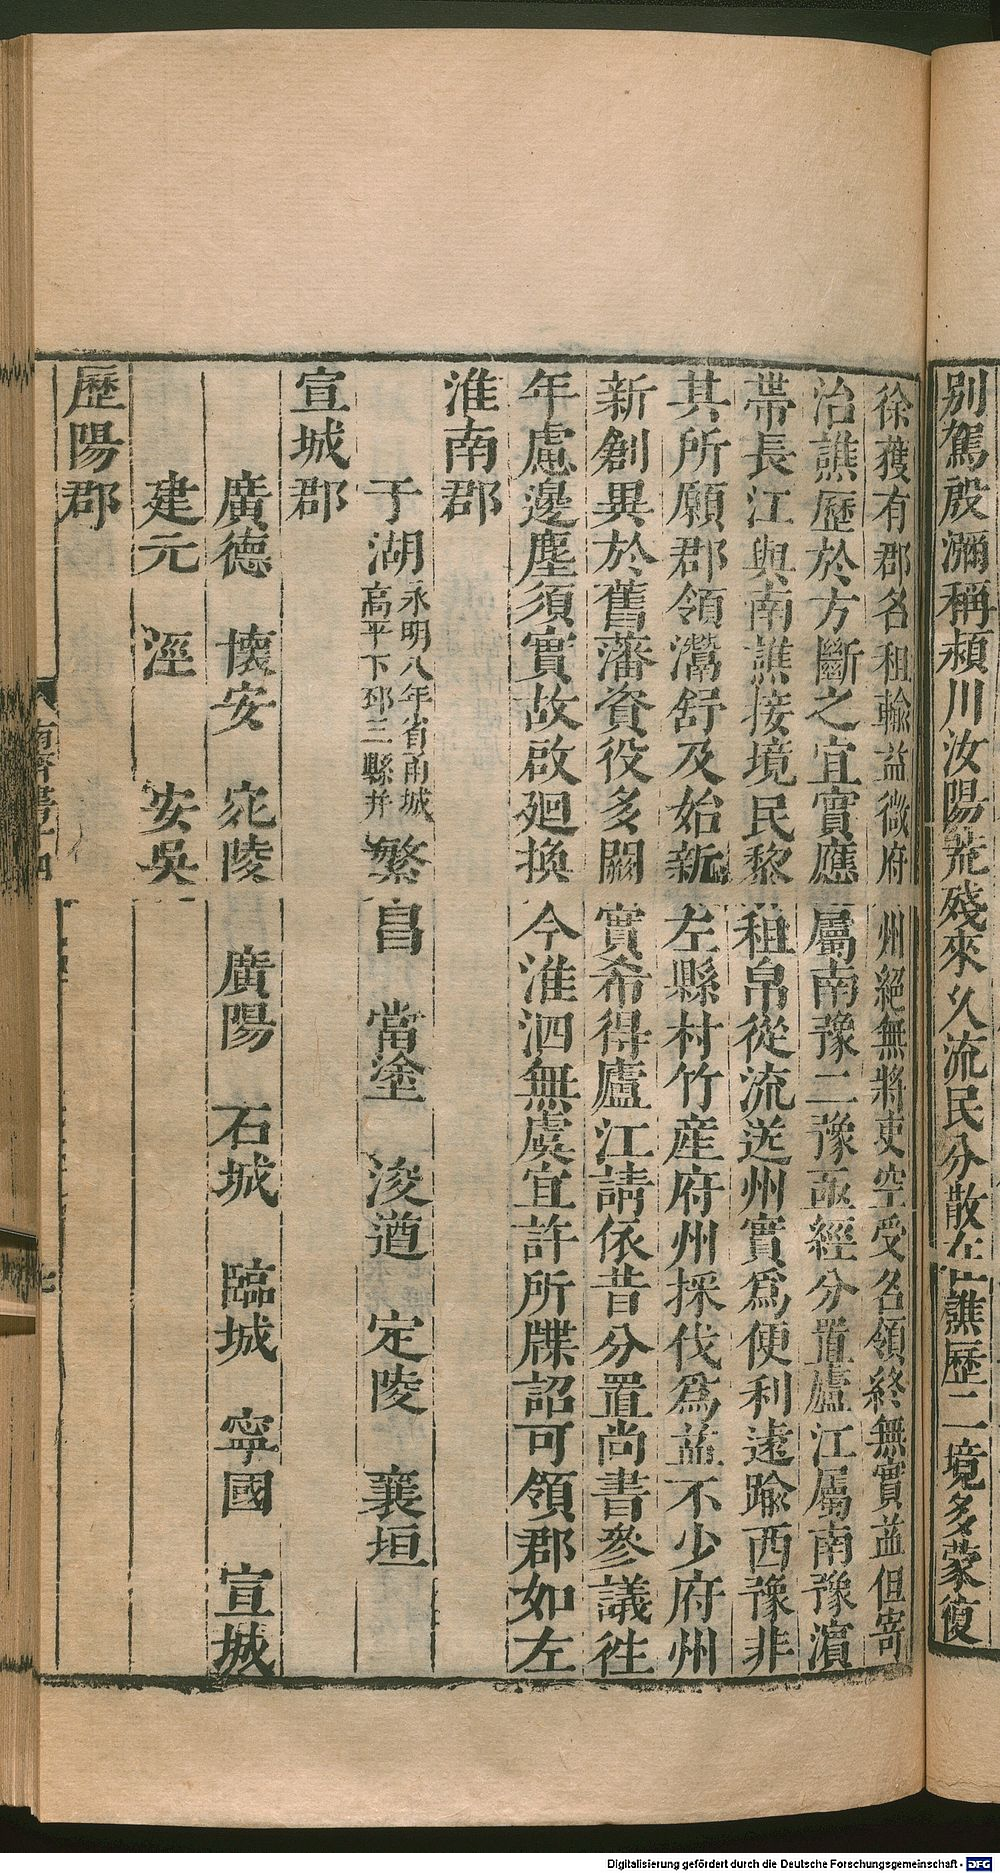 别駕殷瀰稱潁川汝陽荒殘來久流民分散在譙歷二境多蒙復
徐獲有郡名租輸益微府州絕無將吏空受名領終無實益但寄
治譙歷於方斷之宜實應屬南豫二豫亟經分置廬江屬南豫濵
帶長江與南譙接境民黎租帛從流送州實爲便利逺踰西豫非
其所願郡領灊舒及始新左縣村竹産府州採伐爲益不少府州
新創異於舊藩資役多闕實希得廬江請依昔分置尚書參議徃
年慮邊塵須實故啟廻換今淮泗無虞宜許所牒詔可領郡如左
淮南郡
于湖永明八年省甬城高平下邳三縣并 繁昌 當塗 浚遒 定陵 襄垣
宣城郡
廣德 懷安 宛陵 廣陽 石城 臨城 寧國 宣城
建元 涇 安吳
歷陽郡
南齊書十四
七
Digitalisierung gefördert durch die Deutsche Forschungsgemeinschaft - DFG